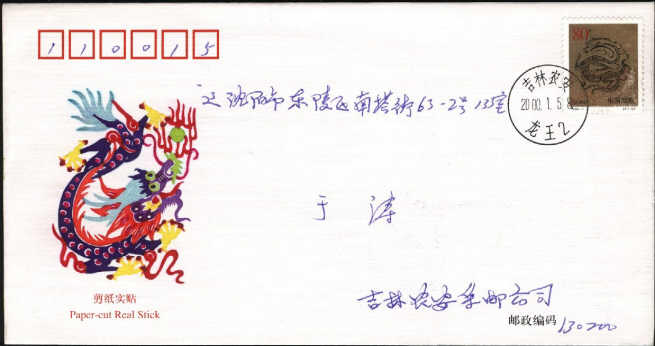 110015
80
吉林农安
2000.1.5.8
龙王2
辽沈阳市东陵区南塔街63-2号13室
于涛
吉林农安集邮公司
剪纸实贴
Paper-cut Real Stick
邮政编码 130200